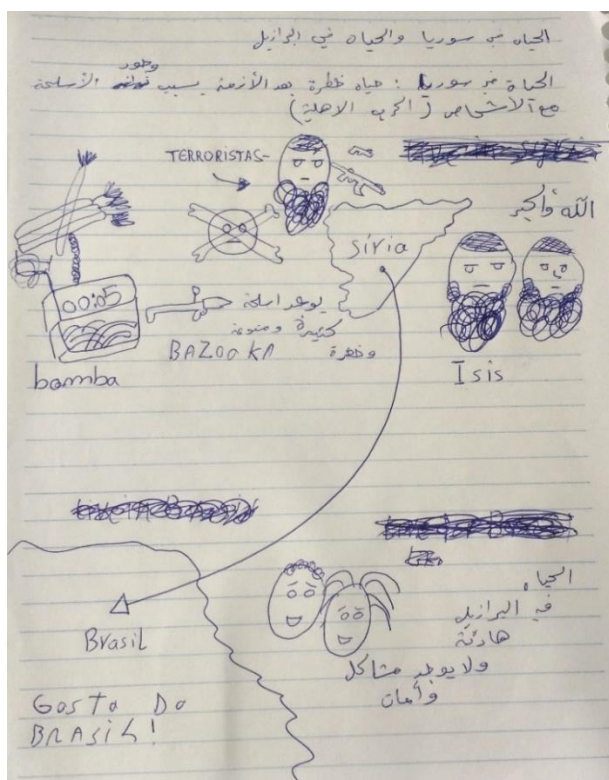 الحياه في سوريا والحياه في البرازيل
وجود
الحياة في سوريا : حياه خطرة بعد الأزمة بسبب الأسلحة
مع الأشخاص (الحرب الاهلية)
TERRORISTAS-
الله وأكبر
síria
00:05
يوجد اسلحة
كثيرة ومنوعة
وخطرة
BAZOOKA
bomba
Isis
الحياه
في البرازيل
هادئة
ولا يوجد مشاكل
وأمان
Brasil
Gosto Do
BRASiL!